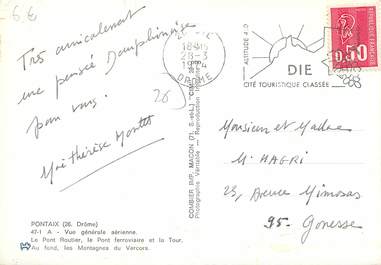 6 €
Très amicalement
une pensée Dauphinoise
pour vous.
26
Me Thérèse
PONTAIX (26. Drôme)
47-1 A - Vue générale aérienne.
Le Pont Routier, le Pont ferroviaire et la Tour.
Au fond, les Montagnes du Vercors.
COMBIER IMP. MACON (71, S.-et-L.) "CIM"
Photographie Véritable - Reproduction
18H15
28-3
DROME
ALTITUDE 410
DIE
CITÉ TOURISTIQUE CLASSÉE
0,50
REPUBLIQUE FRANCAISE
Monsieur et Madame
M. HAGRI
23, Avenue Mimosas
95- Gonesse